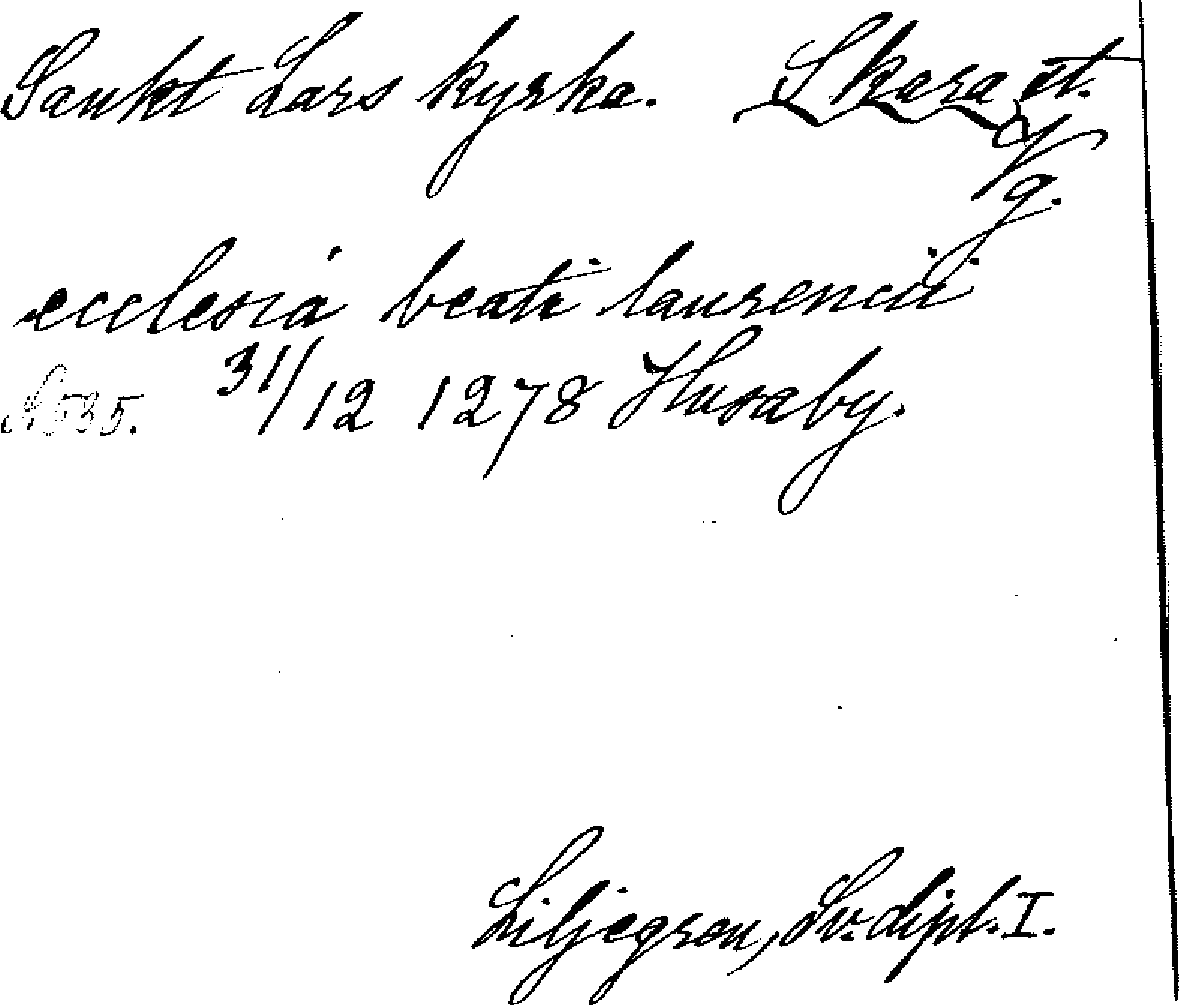 Sankt Lars kyrka. Skara st.
Vg.
ecclesiá beati laurencii
N 535. 31/12 1278 Husaby.
Liljegren, Sv. dipl. I.